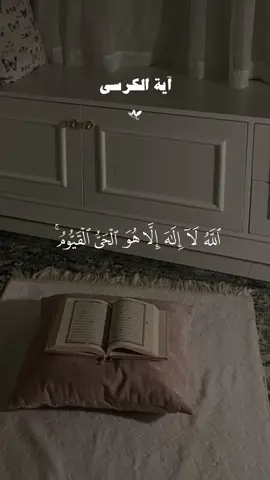 آية الكرسى
ٱللَّهُ لَآ إِلَٰهَ إِلَّا هُوَ ٱلْحَىُّ ٱلْقَيُّومُ ۚ